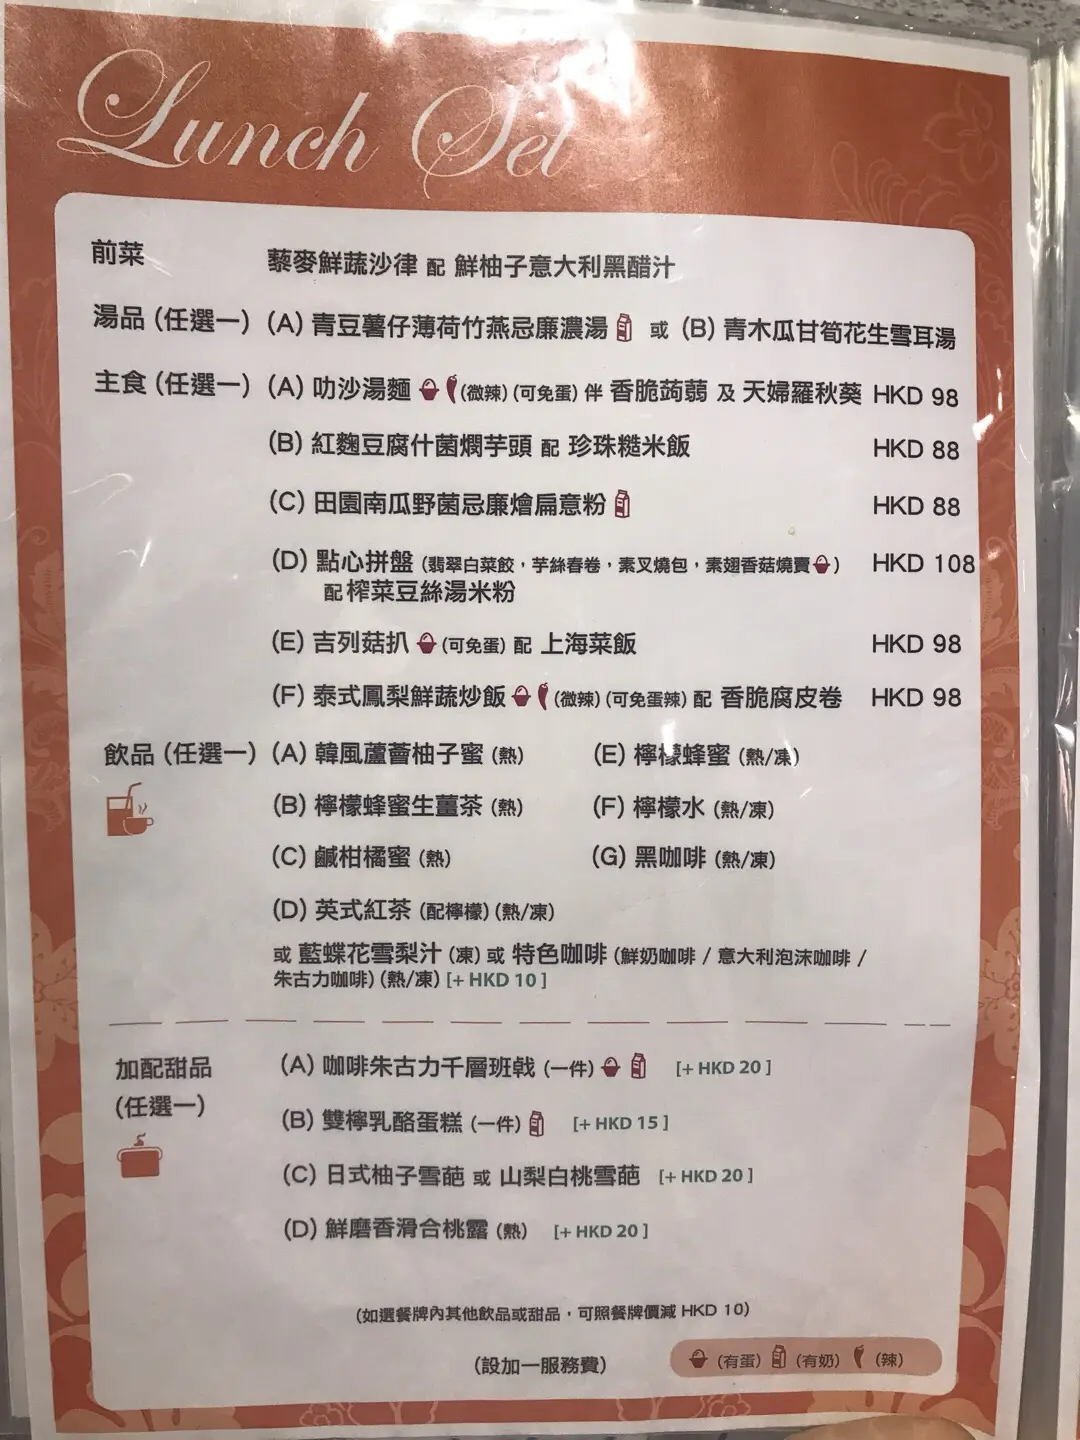 Lunch Set
前菜 藜麥鮮蔬沙律 配 鮮柚子意大利黑醋汁
湯品 (任選一) (A) 青豆薯仔薄荷竹燕忌廉濃湯 或 (B) 青木瓜甘筍花生雪耳湯
主食 (任選一) (A) 叻沙湯麵 (微辣) (可免蛋) 伴 香脆蒟蒻 及 天婦羅秋葵 HKD 98
(B) 紅麴豆腐什菌燜芋頭 配 珍珠糙米飯 HKD 88
(C) 田園南瓜野菌忌廉燴扁意粉 HKD 88
(D) 點心拼盤 (翡翠白菜餃，芋絲春卷，素叉燒包，素翅香菇燒賣) HKD 108
配 榨菜豆絲湯米粉
(E) 吉列菇扒 (可免蛋) 配 上海菜飯 HKD 98
(F) 泰式鳳梨鮮蔬炒飯 (微辣) (可免蛋辣) 配 香脆腐皮卷 HKD 98
飲品 (任選一) (A) 韓風蘆薈柚子蜜 (熱) (E) 檸檬蜂蜜 (熱/凍)
(B) 檸檬蜂蜜生薑茶 (熱) (F) 檸檬水 (熱/凍)
(C) 鹹柑橘蜜 (熱) (G) 黑咖啡 (熱/凍)
(D) 英式紅茶 (配檸檬) (熱/凍)
或 藍蝶花雪梨汁 (凍) 或 特色咖啡 (鮮奶咖啡 / 意大利泡沫咖啡 /
朱古力咖啡) (熱/凍) [+ HKD 10 ]
加配甜品 (A) 咖啡朱古力千層班戟 (一件) [+ HKD 20 ]
(任選一)
(B) 雙檸乳酪蛋糕 (一件) [+ HKD 15 ]
(C) 日式柚子雪葩 或 山梨白桃雪葩 [+ HKD 20 ]
(D) 鮮磨香滑合桃露 (熱) [+ HKD 20 ]
(如選餐牌內其他飲品或甜品，可照餐牌價減 HKD 10)
(設加一服務費) (有蛋) (有奶) (辣)